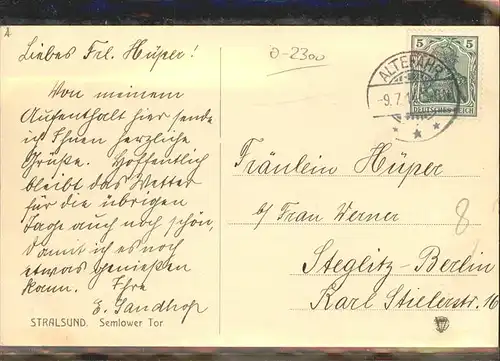 Liebes Frl. Hüper!
0-2300
Von meinem
Aufenthalt hier sende
ich Ihnen herzliche
Grüße. Hoffentlich
bleibt das Wetter
für die übrigen
Tage auch noch schön,
damit ich es noch
etwas genießen
kann. Ihre
E. Sandhop
STRALSUND. Semlower Tor
5 5
DEUTSCHES REICH
ALTEFÄHR
-9.7.1
Fräulein Hüper
b/ Frau Werner
8
Steglitz-Berlin
Karl Stielerstr. 16